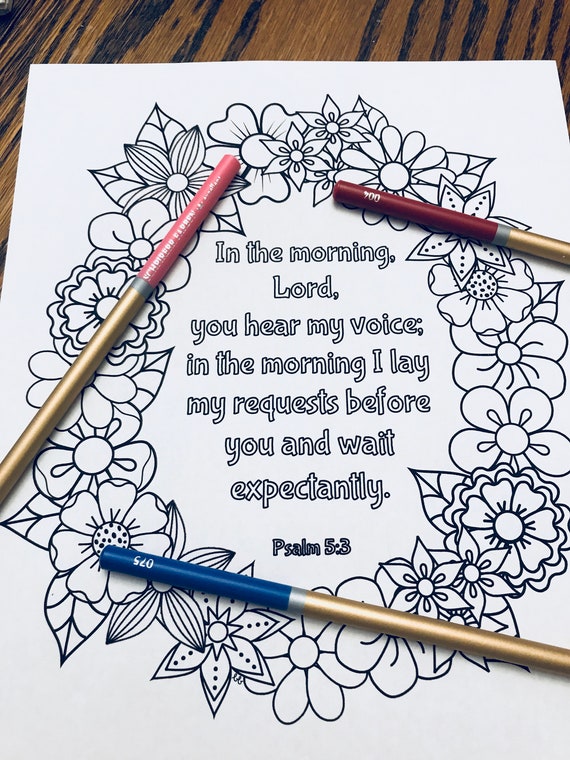 In the morning,
Lord,
you hear my voice;
in the morning I lay
my requests before
you and wait
expectantly.
Psalm 5:3
004
075